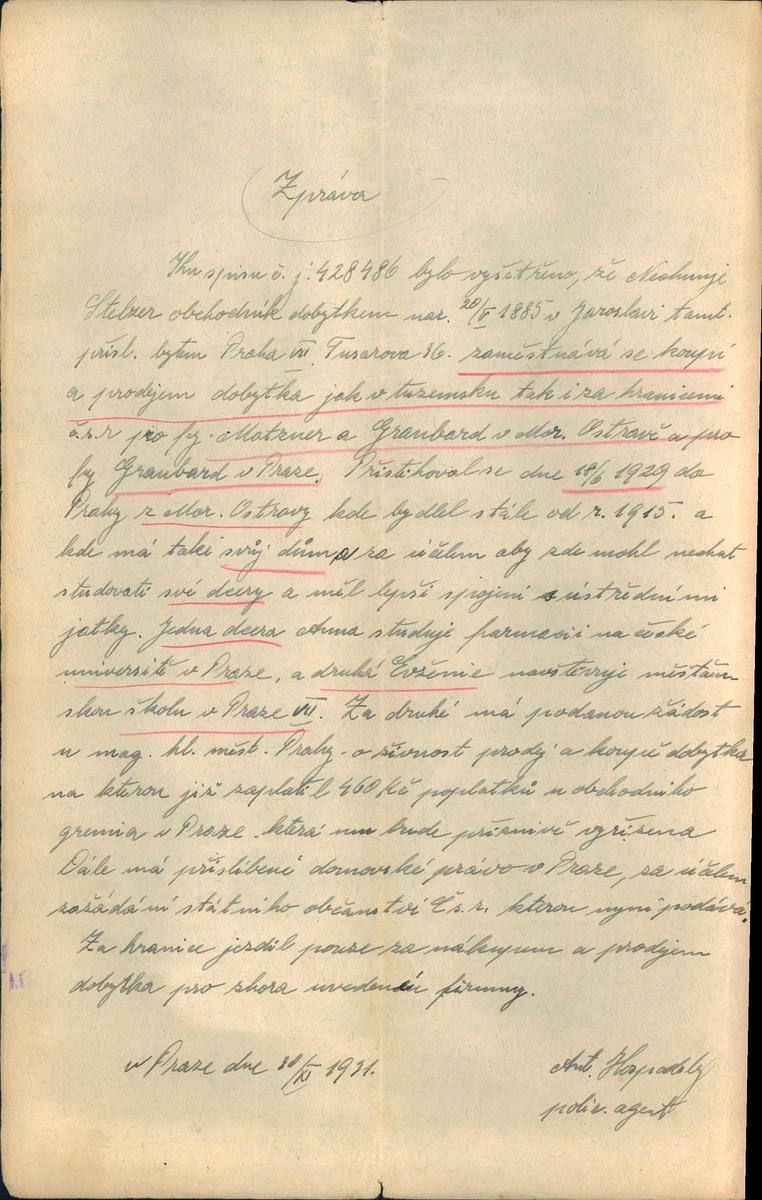 Zpráva
Ku spisu č. j. 428486 bylo vyšetřeno, že Nechunje
Stelzer obchodník dobytkem nar. 20/V 1885 v Jaroslavi tamt.
přísl. bytem Praha VII. Tusarova 36. zaměstnává se koupí
a prodejem dobytka jak v tuzemsku tak i za hranicemi
č.s.r pro fy. Matzner a Graubard v Mor. Ostravě a pro
fy Graubard v Praze. Přistěhoval se dne 18/6 1929 do
Prahy z Mor. Ostravy kde bydlel stále od r. 1915. a
kde má také svůj dům a za účelem aby zde mohl nechat
studovati své dcery a měl lepší spojení s ústředními
jatky. Jedna dcera Anna studuje farmacii na české
universitě v Praze, a druhá Evženie navštěvuje měšťan-
skou školu v Praze VII. Za druhé má podanou žádost
u mag. hl. měst. Prahy. o živnost prodej a koupě dobytka
na kterou již zaplatil 460 Kč poplatků u obchodního
gremia v Praze. která mu bude příznivě vyřízena
Dále má přislíbené domovské právo v Praze, za účelem
zažádání státního občanství Čs.r. kterou nyní podává.
Za hranice jezdil pouze za nákupem a prodejem
dobytka pro shora uvedenéu firmy.
v Praze dne 30/XI 1931.
Ant. Hospodský
polic. agent